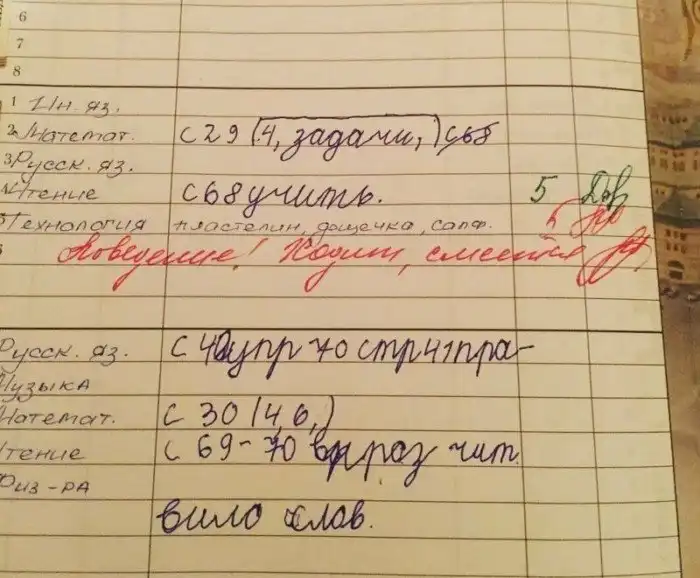 6
7
8
1 Ин. яз.
2 Математ. с 29 (4, задачи,) с68
3 Русск. яз.
4 Чтение с 68 учить. 5
5 Технология пластелин, дощечка, салф. 5
Поведение! Ходит, смеется
Русск. яз. с 40 упр 70 стр 41 пра-
Музыка
Математ. с 30 (4, 6,)
Чтение с 69-70 выраз чит.
Физ-ра
вило слов.